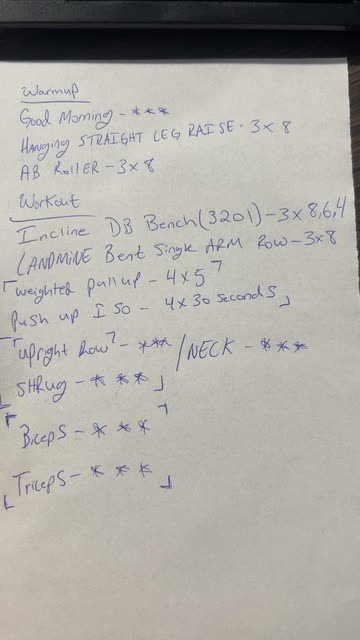 Warmup
Good Morning - ***
Hanging STRAIGHT LEG RAISE - 3x8
AB RollER - 3x8
Workout
Incline DB Bench (3201) - 3x8,6,4
LANDMINE Bent Single ARM Row - 3x8
weighted pull up - 4x5
Push up ISO - 4x30 seconds
upright Row - *** / NECK - ***
SHRug - ***
Biceps - ***
Triceps - ***